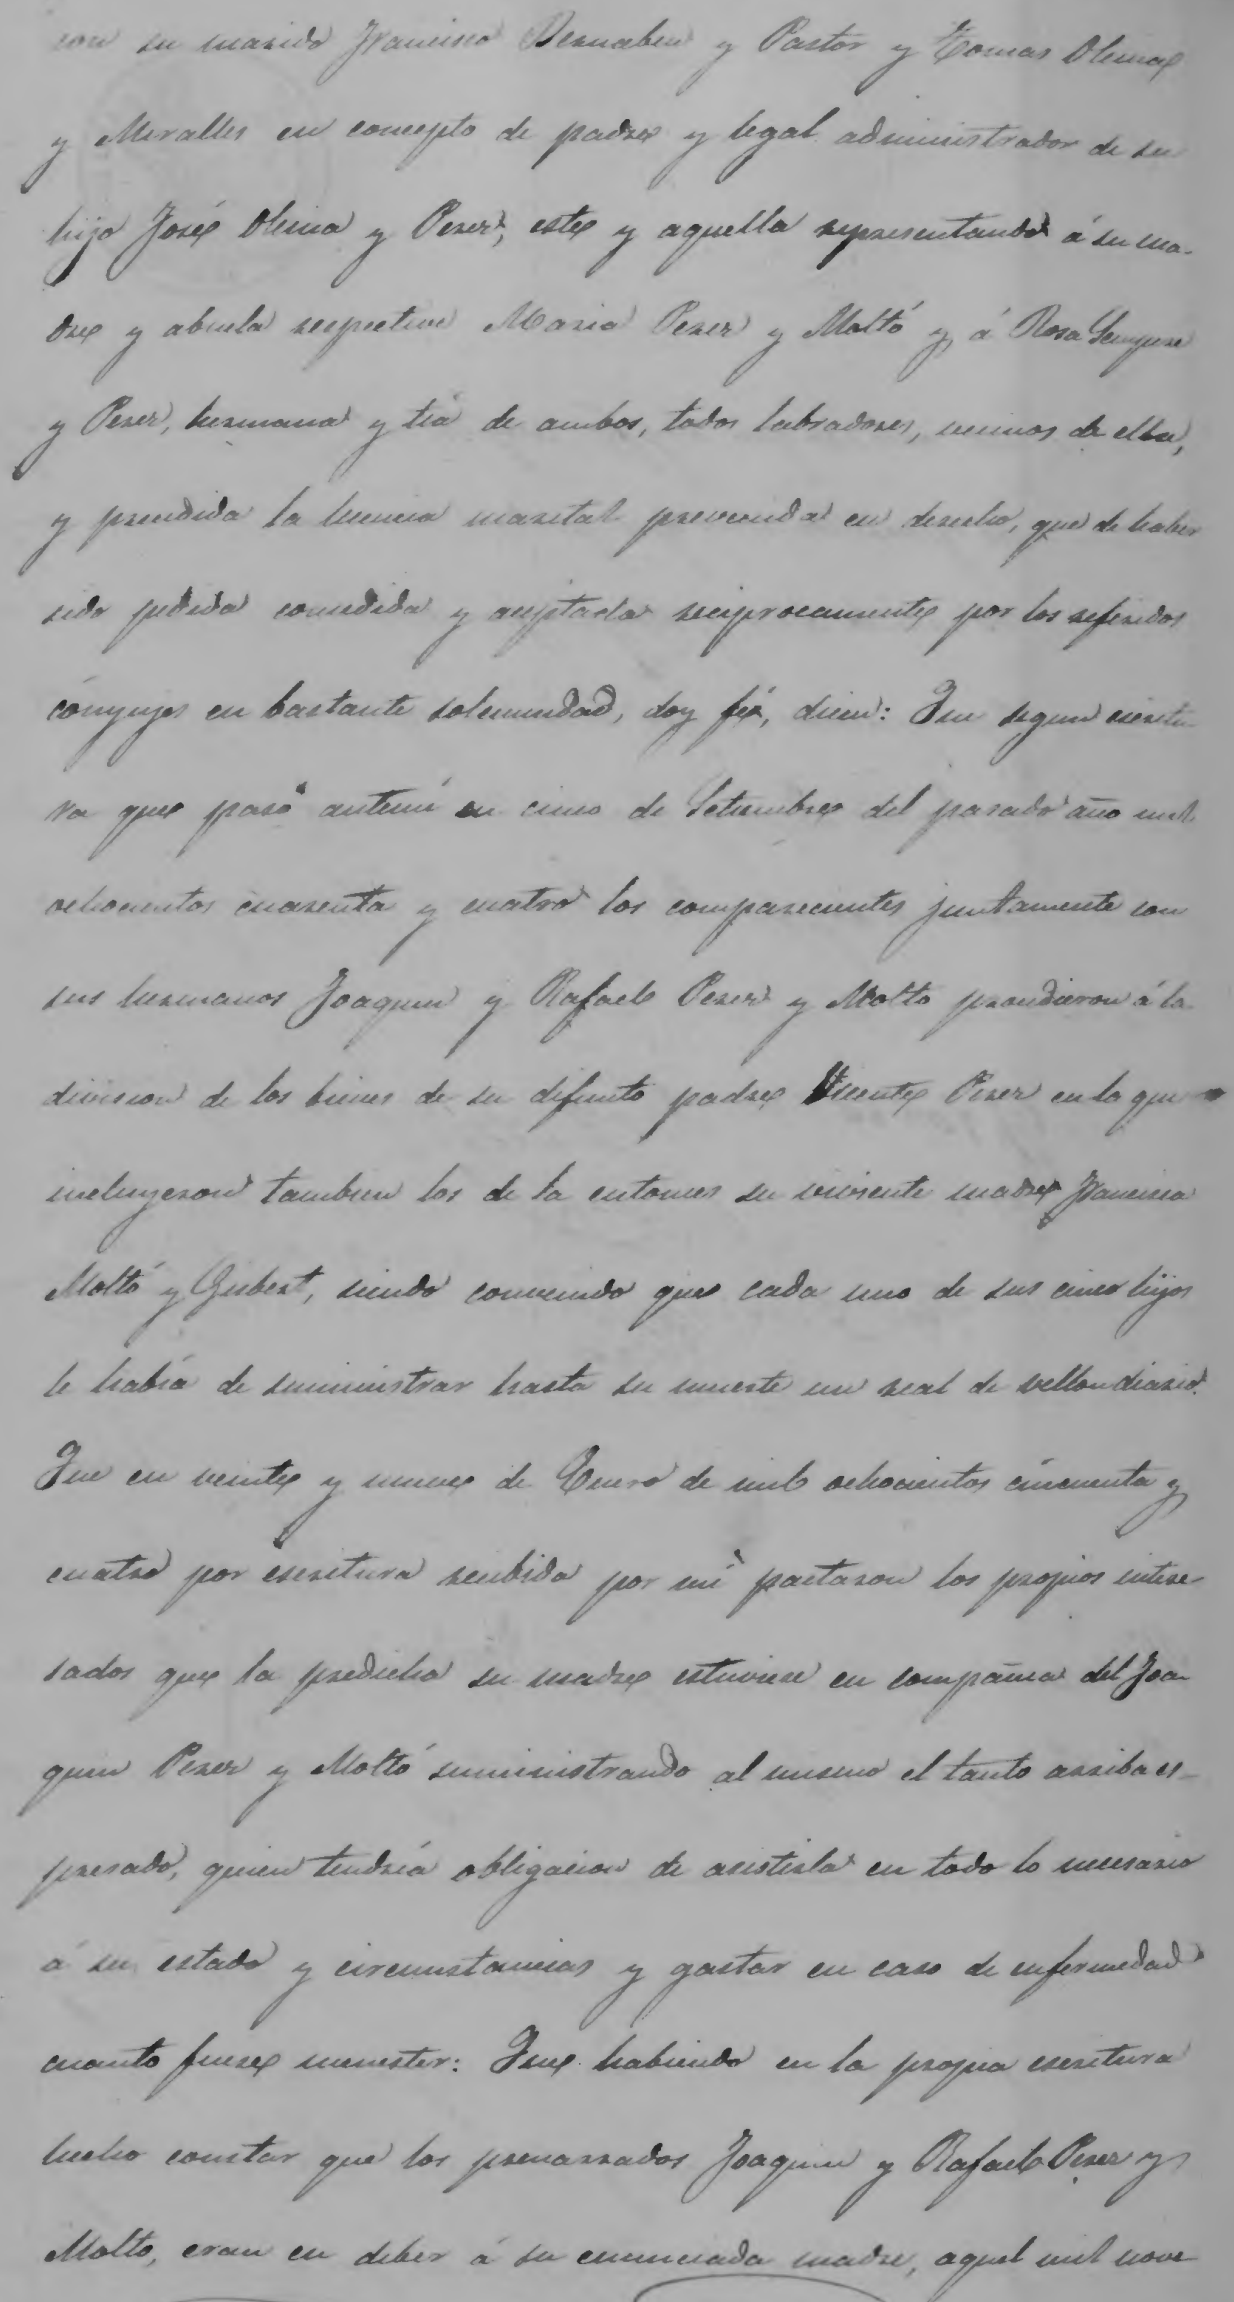 con su marido Francisco Bernabeu y Pastor y Tomas Olcina
y Miralles en concepto de padre y legal administrador de su
hijo José Olcina y Perez, este y aquella representando á su ma-
dre y abuela respective Maria Perez y Moltó y á Rosa Sempere
y Perez, hermana y tia de ambos, todos labradores, vecinos de ella,
y precedida la licencia marital prevenida en derecho, que de haber
sido pedida concedida y aceptada reciprocamente por los referidos
cónyujes en bastante solemnidad, doy fé, dicen: Que segun escritu-
ra que pasó antemí en cinco de Setiembre del pasado año mil
ochocientos cuarenta y cuatro los comparecientes juntamente con
sus hermanos Joaquin y Rafael Perez y Molto procedieron á la
division de los bienes de su difunto padre Vicente Perez en la que
incluyeron tambien los de la entonces su viviente madre Francisca
Moltó y Gisbert, siendo convenido que cada uno de sus cinco hijos
le habia de suministrar hasta su muerte un real de vellon diario.
Que en veinte y nueve de Enero de mil ochocientos cincuenta y
cuatro por escritura recibida por mi pactaron los propios intere-
sados que la predicha su madre estuviese en compañia del Joa-
quin Perez y Moltó suministrando al mismo el tanto arriba es-
presado, quien tendría obligacion de asistirla en todo lo necesario
á su estado y circunstancias y gastar en caso de enfermedad
cuanto fuese menester: Que habiendo en la propia escritura
hecho constar que los prenarrados Joaquin y Rafael Perez y
Molto, eran en deber á su enunciada madre, aquel mil nove-